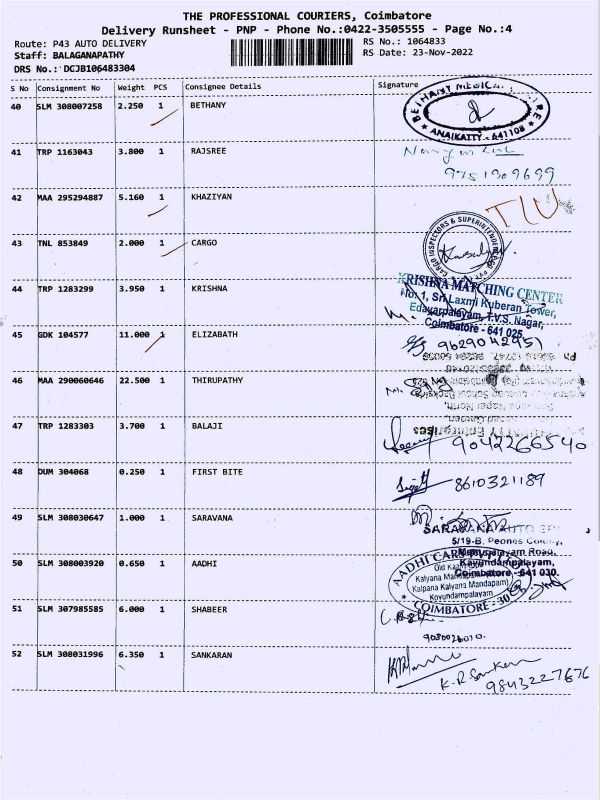 THE PROFESSIONAL COURIERS, Coimbatore
Delivery Runsheet - PNP - Phone No.:0422-3505555 - Page No.:4
Route: P43 AUTO DELIVERY RS No.: 1064833
Staff: BALAGANAPATHY RS Date: 23-Nov-2022
DRS No.: DCJB106483304
S No Consignment No Weight PCS Consignee Details Signature
40 SLM 308007258 2.250 1 BETHANY
BETHANY MEDICAL
ANAIKATTY - 641108
41 TRP 1163043 3.800 1 RAJSREE
9751909699
42 MAA 295294887 5.160 1 KHAZIYAN
43 TNL 853849 2.000 1 CARGO
CARGO INSPECTORS & SUPERINTENDENCE
44 TRP 1283299 3.950 1 KRISHNA
KRISHNA MATCHING CENTER
No: 1, Sri Laxmi Kuberan Tower,
Edayarpalayam, T.V.S. Nagar,
Coimbatore - 641 025
45 GDK 104577 11.000 1 ELIZABATH
9629042951
46 MAA 290060646 22.500 1 THIRUPATHY
47 TRP 1283303 3.700 1 BALAJI
9042266540
48 DUM 304068 0.250 1 FIRST BITE
8610321189
49 SLM 308030647 1.000 1 SARAVANA
5/19-B, Peones Colony,
Kavundampalayam,
Coimbatore - 641 030.
50 SLM 308003920 0.650 1 AADHI
AADHI CARS
Kalpana Kalyana Mandapam
Kovundampalayam
COIMBATORE - 30
51 SLM 307985585 6.000 1 SHABEER
52 SLM 308031996 6.350 1 SANKARAN
K-R Sankaran
9843227676